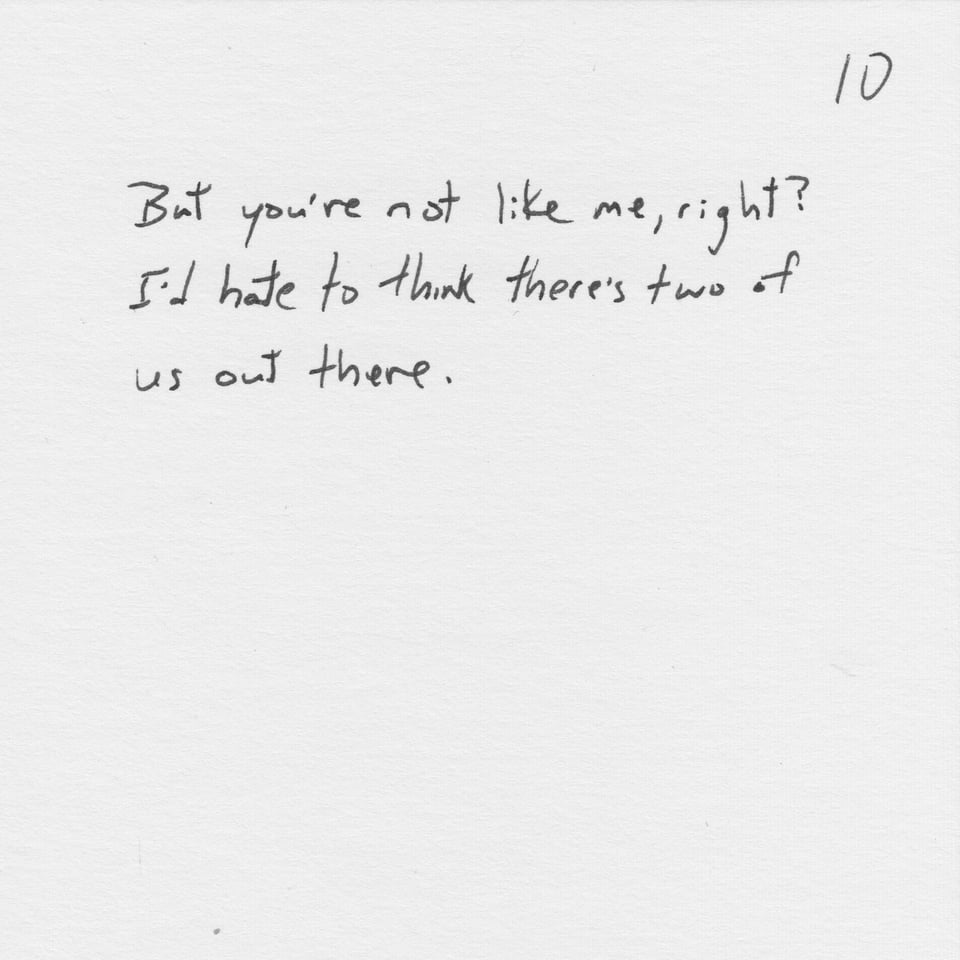 10
But you're not like me, right?
I'd hate to think there's two of
us out there.